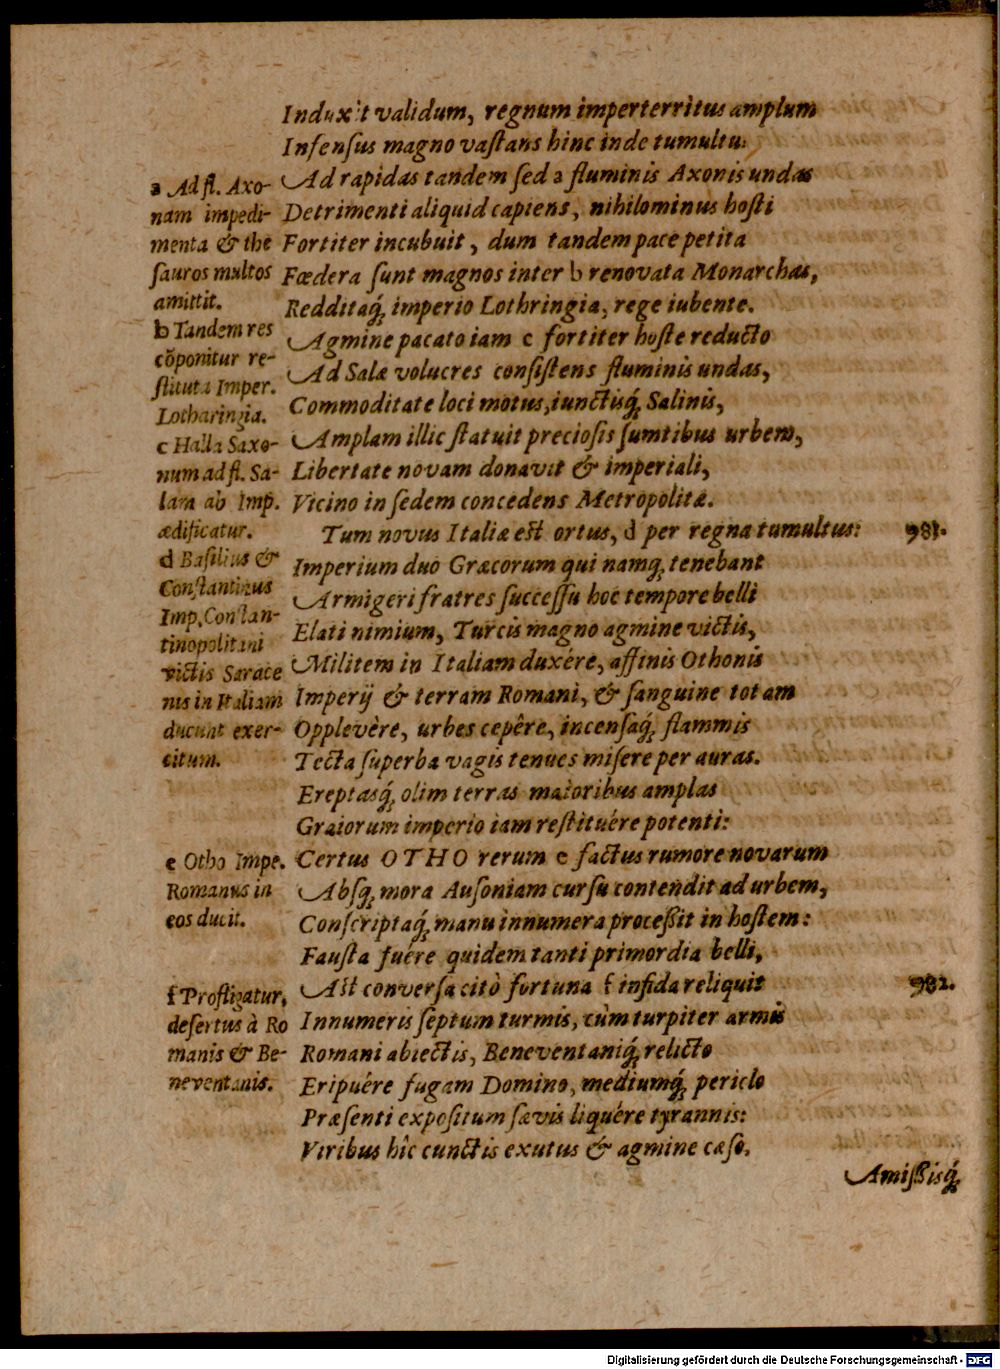 Induxit validum, regnum imperterritus amplum
Infensus magno vaſtans hinc inde tumultu:
Ad rapidas tandem ſed a fluminis Axonis undas
Detrimenti aliquid capiens, nihilominus hoſti
Fortiter incubuit, dum tandem pace petita
Fœdera ſunt magnos inter b renovata Monarchas,
Redditaq́; imperio Lothringia, rege iubente.
Agmine pacato iam c fortiter hoſte reducto
Ad Salæ volucres conſiſtens fluminis undas,
Commoditate loci motus, iunctisq́; Salinis,
Amplam illic ſtatuit precioſis ſumtibus urbem,
Libertate novam donavit & imperiali,
Vicino in ſedem concedens Metropolitæ.
Tum novus Italiæ eſt ortus, d per regna tumultus:
Imperium duo Græcorum qui namq́; tenebant
Armigeri fratres ſucceſſu hoc tempore belli
Elati nimium, Turcis magno agmine victis,
Militem in Italiam duxére, affinis Othonis
Imperij & terram Romani, & ſanguine totam
Opplevère, urbes cepêre, incenſaq́; flammis
Tecta ſuperba vagis tenues miſere per auras.
Ereptasq́; olim terras maioribus amplas
Graiorum imperio iam reſtituére potenti:
Certus OTHO rerum e factus rumore novarum
Absq́; mora Auſoniam curſu contendit ad urbem,
Conſcriptaq́; manu innumera proceßit in hoſtem:
Fauſta fuére quidem tanti primordia belli,
Aſt converſa citò fortuna f infida reliquit
Innumeris ſeptum turmis, cùm turpiter armis
Romani abiectis, Beneventaniq́; relicto
Eripuére fugam Domino, mediumq́; periclo
Præſenti expoſitum ſævis liquére tyrannis:
Viribus hîc cunctis exutus & agmine cæſo,
Amißisq́;
a Ad fl. Axo-
nam impedi-
menta & the
ſauros multos
amittit.
b Tandem res
cõponitur re-
ſtituta Imper.
Lotharingia.
c Halla Saxo-
num ad fl. Sa-
lam ab Imp.
ædificatur.
d Baſilius &
Conſtantinus
Imp. Conſtan-
tinopolitani
victis Sarace
nis in Italiam
ducunt exer-
citum.
e Otho Impe.
Romanus in
eos ducit.
f Profligatur,
deſertus à Ro
manis & Be-
neventanis.
981.
982.
Digitalisierung gefördert durch die Deutsche Forschungsgemeinschaft - DFG